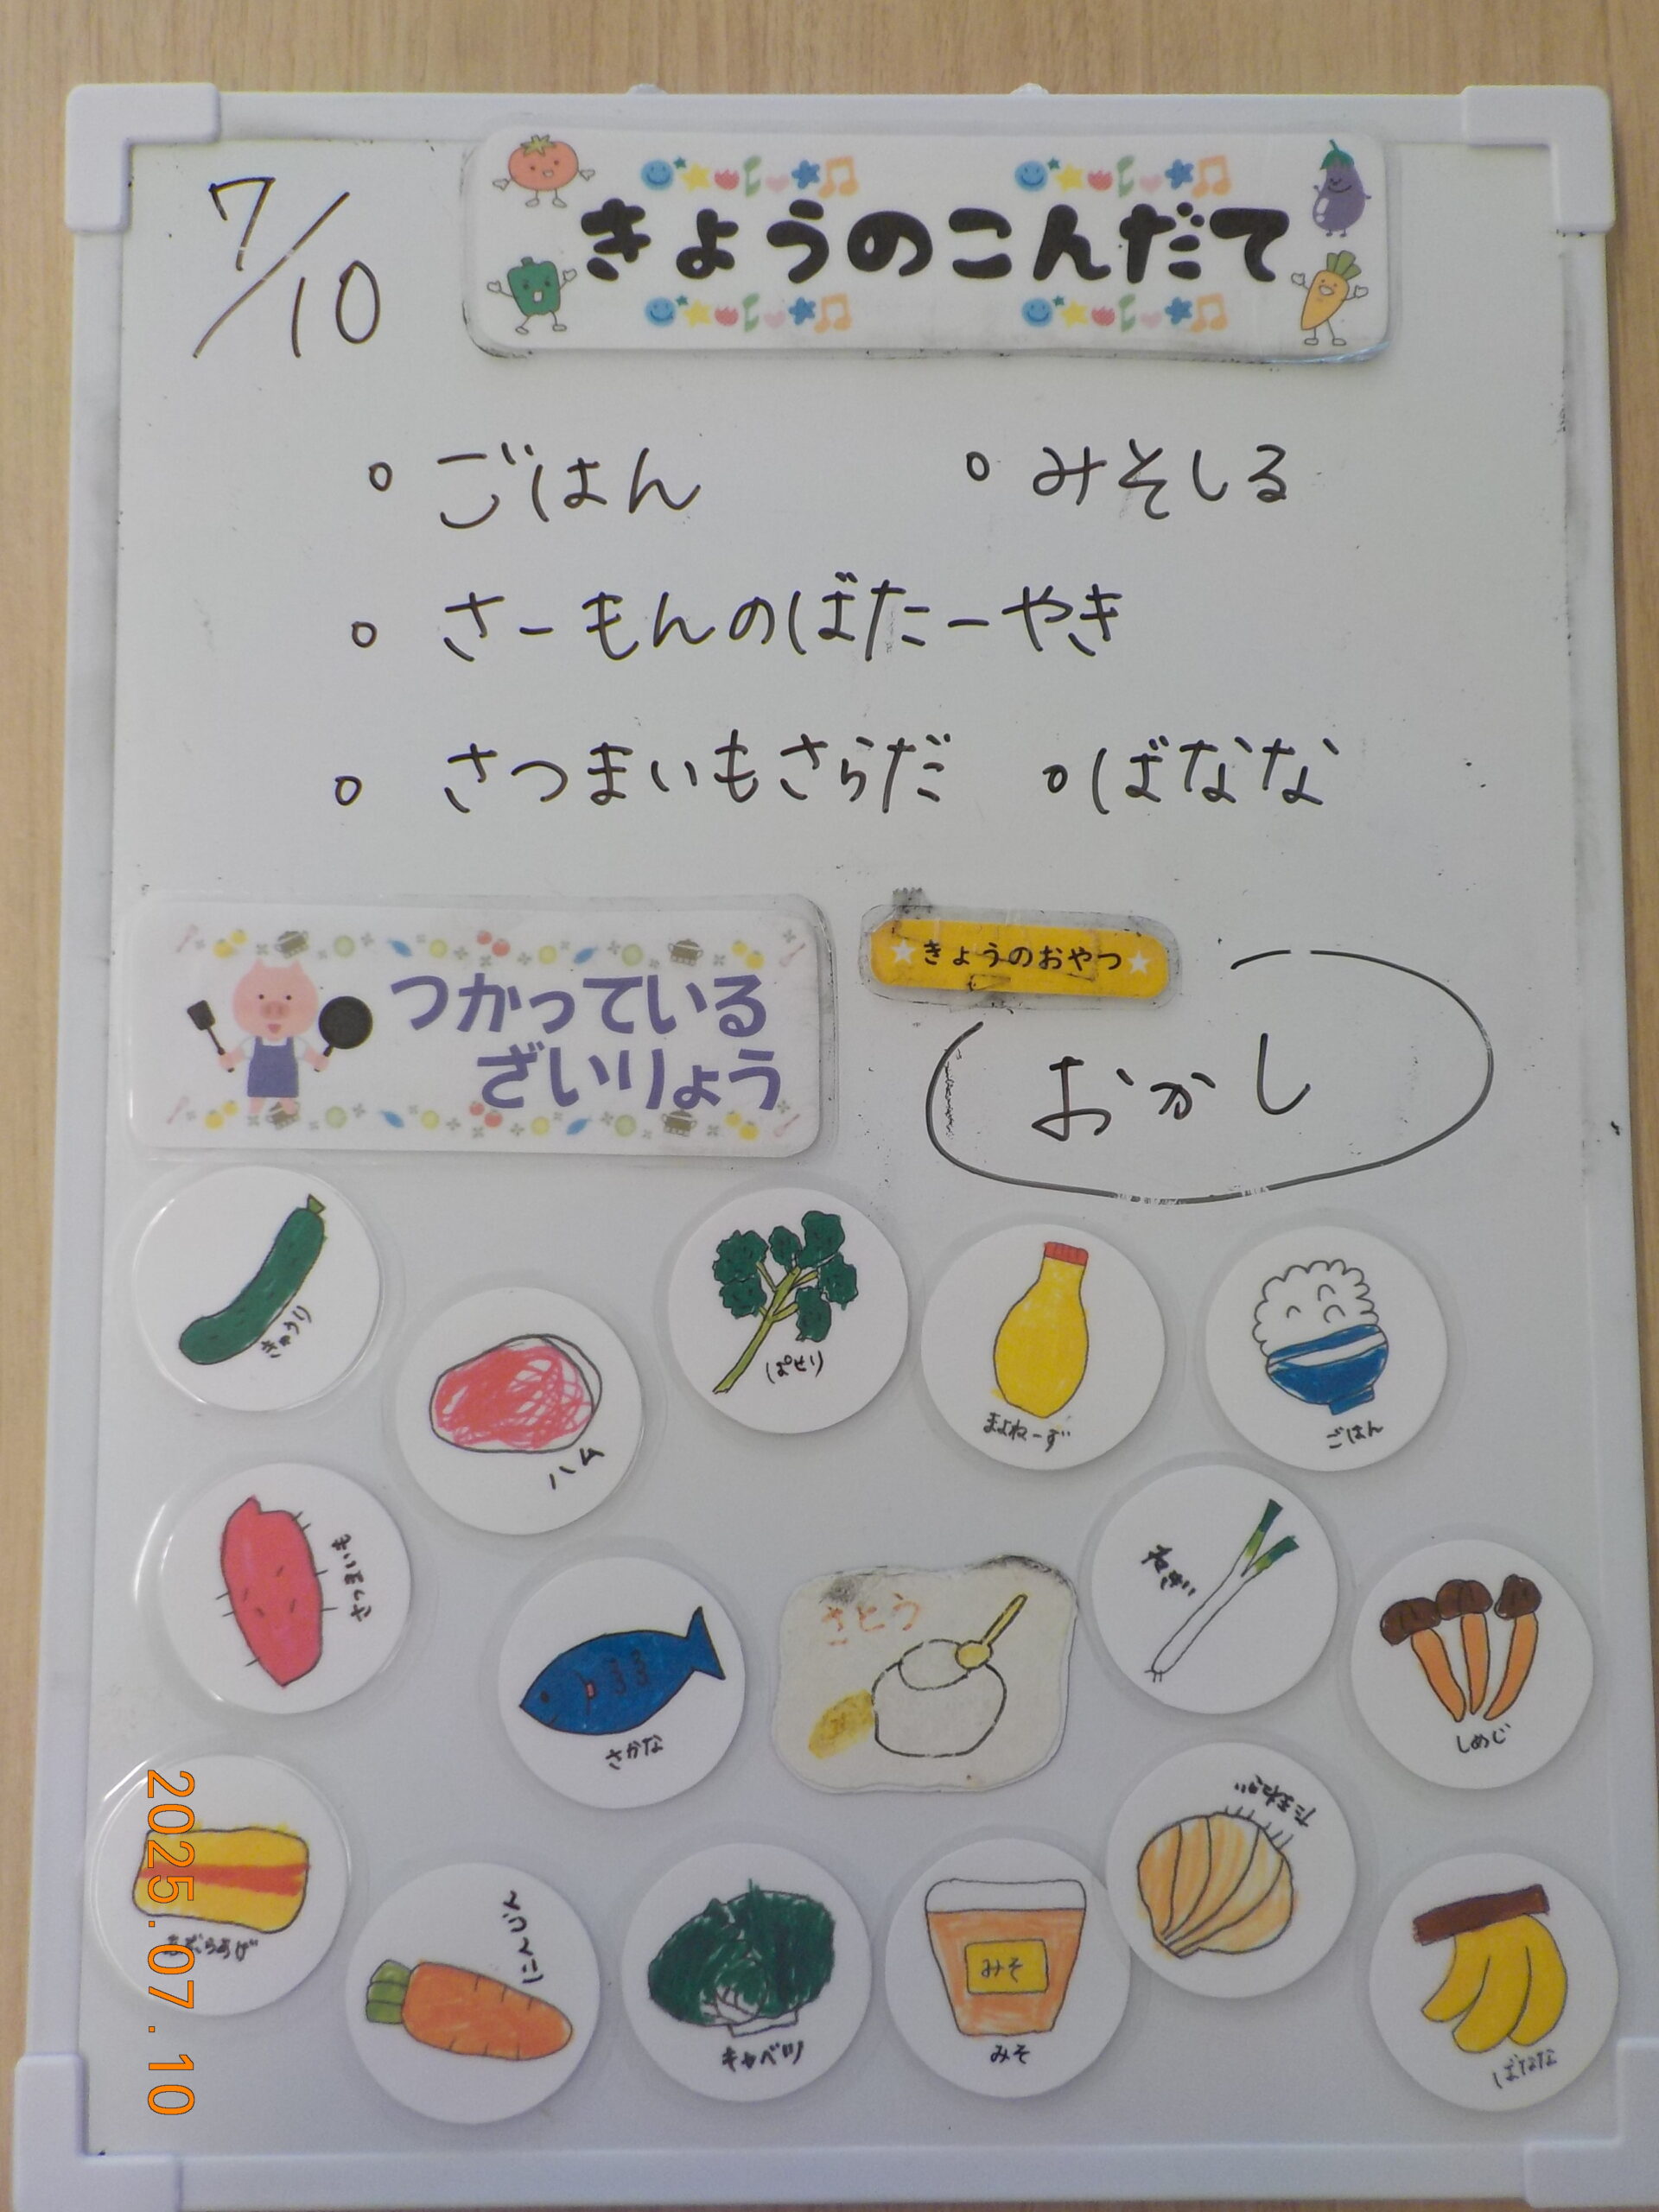 7/10
きょうのこんだて
ごはん
みそしる
さーもんのばたーやき
さつまいもさらだ
ばなな
つかっている
ざいりょう
きょうのおやつ
おかし
きゅうり
ハム
ぱせり
まよねーず
ごはん
さつまいも
さかな
さとう
ねぎ
しめじ
にんじん
キャベツ
みそ
みそ
たまねぎ
ばなな
2025.07.10